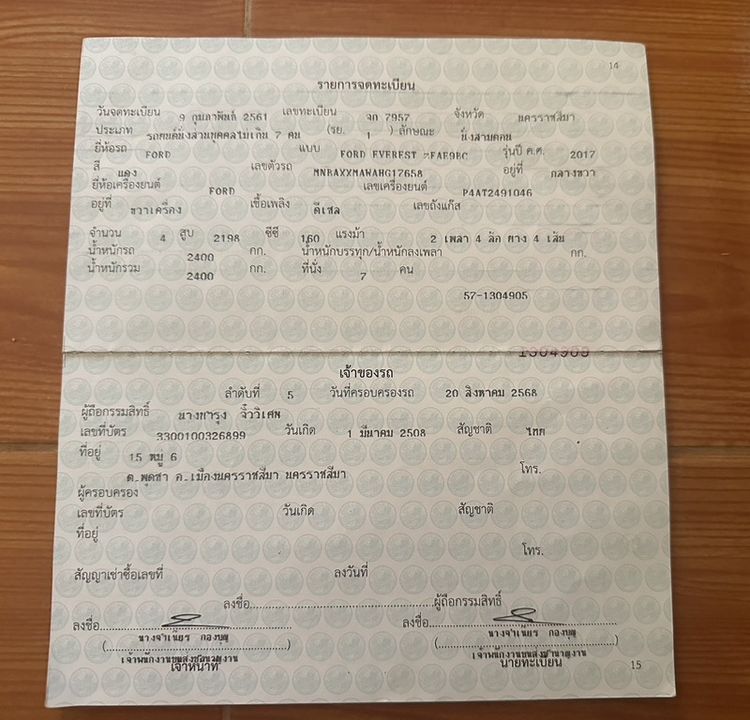 14
รายการจดทะเบียน
วันจดทะเบียน 9 กุมภาพันธ์ 2561 เลขทะเบียน 7957 จังหวัด นครราชสีมา
ประเภท รถยนต์นั่งส่วนบุคคลไม่เกิน 7 คน (รย. 1 ) ลักษณะ นั่งสามตอน
ยี่ห้อรถ FORD แบบ FORD EVEREST รุ่นปี ค.ศ. 2017
สี แดง เลขตัวรถ MNBAXXMAWAHG17658 อยู่ที่ กลางขวา
ยี่ห้อเครื่องยนต์ FORD เลขเครื่องยนต์ P4AT2491046
อยู่ที่ ขวาเครื่อง เชื้อเพลิง ดีเซล เลขถังแก๊ส
จำนวน 4 สูบ 2198 ซีซี 160 แรงม้า 2 เพลา 4 ล้อ ยาง 4 เส้น
น้ำหนักรถ 2400 กก. น้ำหนักบรรทุก/น้ำหนักลงเพลา กก.
น้ำหนักรวม 2400 กก. ที่นั่ง 7 คน
57-1304905
เจ้าของรถ
ลำดับที่ 5 วันที่ครอบครองรถ 20 สิงหาคม 2568
ผู้ถือกรรมสิทธิ์
เลขที่บัตร 3300100326899 วันเกิด 1 มีนาคม 2508 สัญชาติ ไทย
ที่อยู่ 15 หมู่ 6 โทร.
ต.พุดซา อ.เมืองนครราชสีมา นครราชสีมา
ผู้ครอบครอง
เลขที่บัตร วันเกิด สัญชาติ
ที่อยู่
โทร.
สัญญาเช่าซื้อเลขที่ ลงวันที่
ลงชื่อ ผู้ถือกรรมสิทธิ์
ลงชื่อ ลงชื่อ
นางจำเนียร กองบุญ นางจำเนียร กองบุญ
เจ้าพนักงานขนส่งชำนาญงาน เจ้าพนักงานขนส่งชำนาญงาน
เจ้าหน้าที่ นายทะเบียน
15